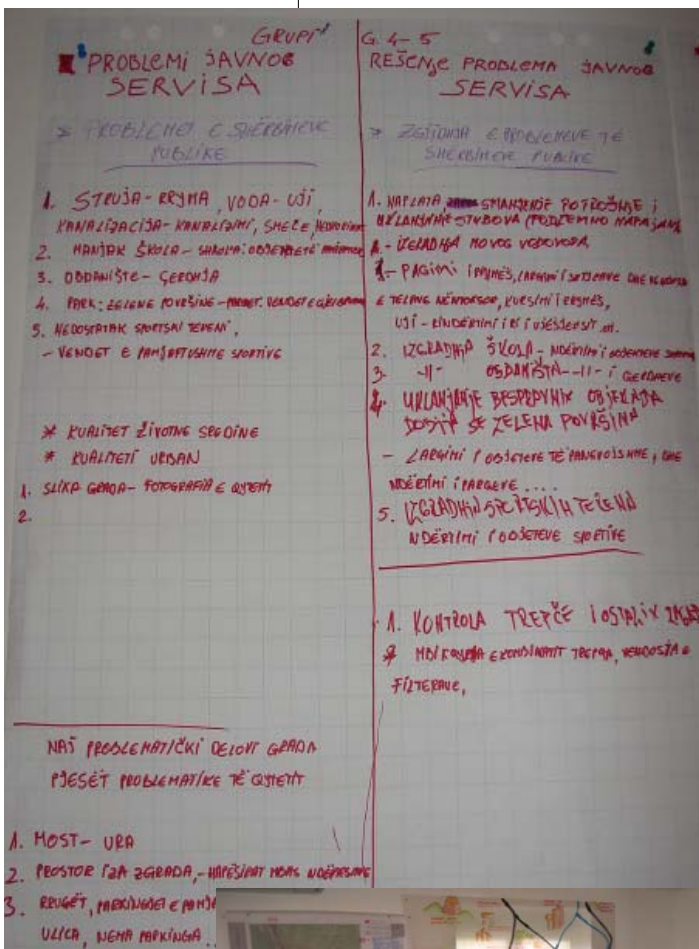 GRUPI
PROBLEMI JAVNOG
SERVISA
* PROBLEMET E SHËRBIMEVE
PUBLIKE
1. STRUJA - RRYMA, VODA - UJI,
KANALIZACIJA - KANALIZIMI, SMEČE,
2. MANJAK ŠKOLA - SHKOLLA:
3. OBDANIŠTE - ÇERDHJA
4. PARK: ZELENE POVRŠINE -
5. NEDOSTATAK SPORTSKI TERENI,
- VENDET E PAMJAFTUSHME SPORTIVE
* KUALITET ŽIVOTNE SREDINE
* KUALITETI URBAN
1. SLIKA GRADA - FOTOGRAFIA E QYTETIT
2.
NAJ PROBLEMATIČKI DELOVI GRADA
PJESËT PROBLEMATIKE TË QYTETIT
1. MOST - URA
2. PROSTOR IZA ZGRADA, - HAPËSIRAT MBAS
3. RRUGËT, PARKINGJET E
ULICA, NEMA PARKINGA
G. 4-5
REŠENJE PROBLEMA JAVNOG
SERVISA
* ZGJIDHJA E PROBLEMEVE TË
SHERBIMEVE PUBLIKE
1. NAPLATA, SMANJENJE POTROŠNJE I
UKLANJANJE STUBOVA (PODZEMNO NAPAJANJE
1. - IZGRADNJA NOVOG VODOVODA
1 - PAGIMI I RRYMËS, LARGIMI I
E TELAVE NËNTOKSOR, KURSIMI I RRYMËS,
UJI - RINDËRTIMI I RI I
2. IZGRADNJA ŠKOLA - NDËRTIMI I OBJEKTEVE
3. -II- OBDANIŠTA -II- I ÇERDHEVE
4. UKLANJANJE BESPRAVNIH OBJEKATA
DOBIJA SE ZELENA POVRŠINA
- LARGIMI I OBJETEVE TË PANEVOJSHME, DHE
NDËRTIMI I PARQEVE ....
5. IZGRADNJA SPORTSKIH TERENA
NDËRTIMI I OBJETEVE SPORTIVE
1. KONTROLA TREPČE I OSTALIH
* E KOMBINATIT TREPÇA, VENDOSJA E
FILTERAVE,